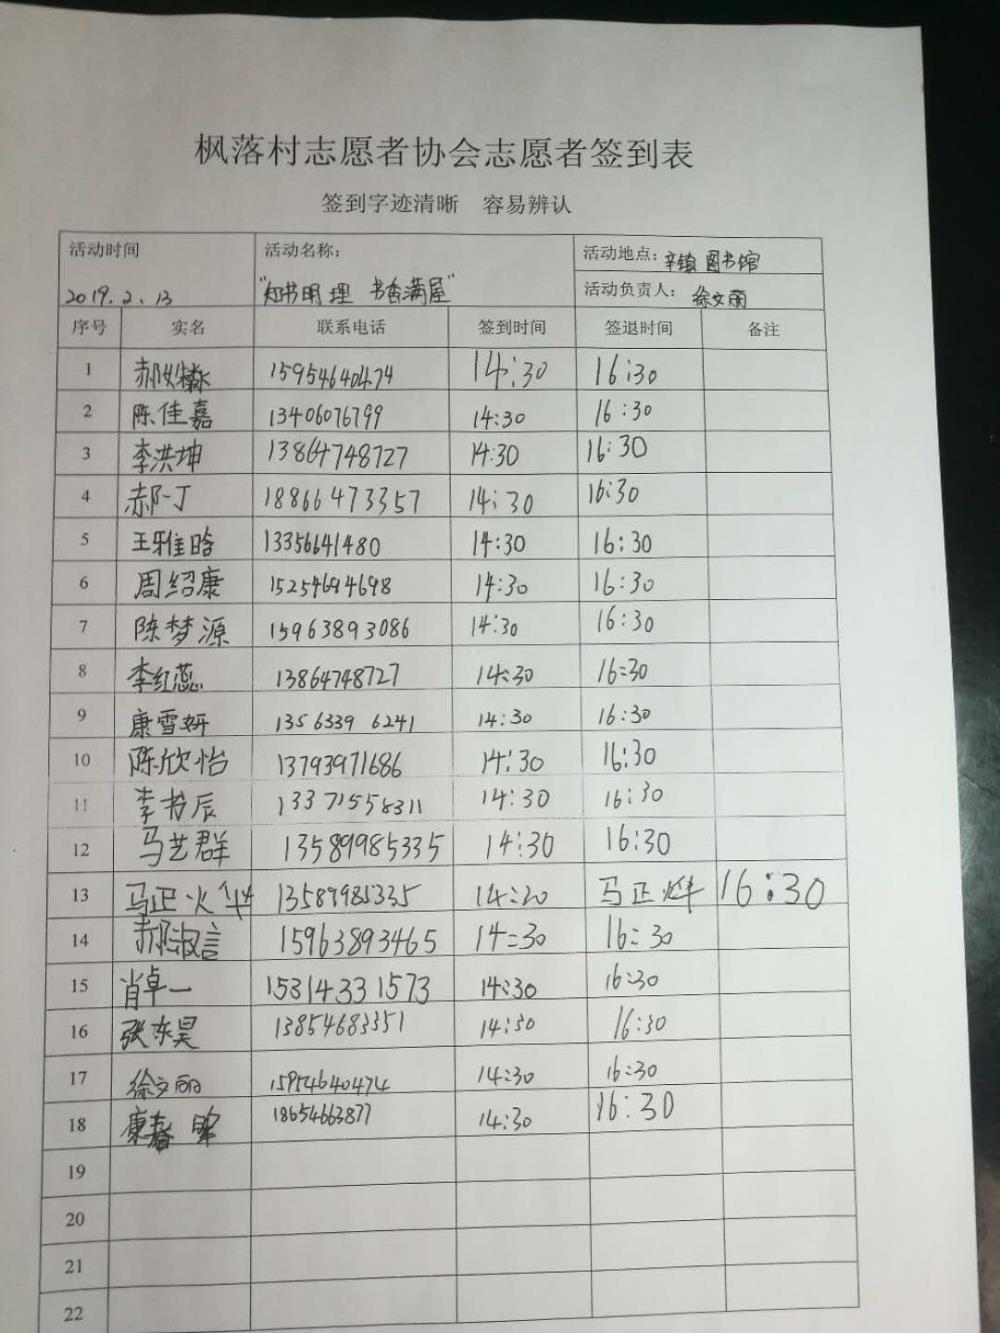 枫落村志愿者协会志愿者签到表
签到字迹清晰 容易辨认
活动时间 2019.2.13
活动名称: "知书明理 书香满屋"
活动地点: 辛镇图书馆
活动负责人: 徐文丽
序号 实名 联系电话 签到时间 签退时间 备注
1 15954640474 14:30 16:30
2 陈佳嘉 13406076799 14:30 16:30
3 李洪坤 13864748727 14:30 16:30
4 郝一丁 18866473357 14:30 16:30
5 王雅晗 13356641480 14:30 16:30
6 周绍康 15254694698 14:30 16:30
7 陈梦源 15963893086 14:30 16:30
8 李红蕊 13864748727 14:30 16:30
9 康雪妍 1356339 6241 14:30 16:30
10 陈欣怡 13793971686 14:30 16:30
11 李书辰 13371558311 14:30 16:30
12 马艺群 13589985335 14:30 16:30
13 马正烨 13589985335 14:20 马正烨 16:30
14 郝淑言 15963893465 14:30 16:30
15 肖卓一 15314331573 14:30 16:30
16 张东昊 13854683351 14:30 16:30
17 徐文丽 15954640474 14:30 16:30
18 康春 18654663877 14:30 16:30
19
20
21
22